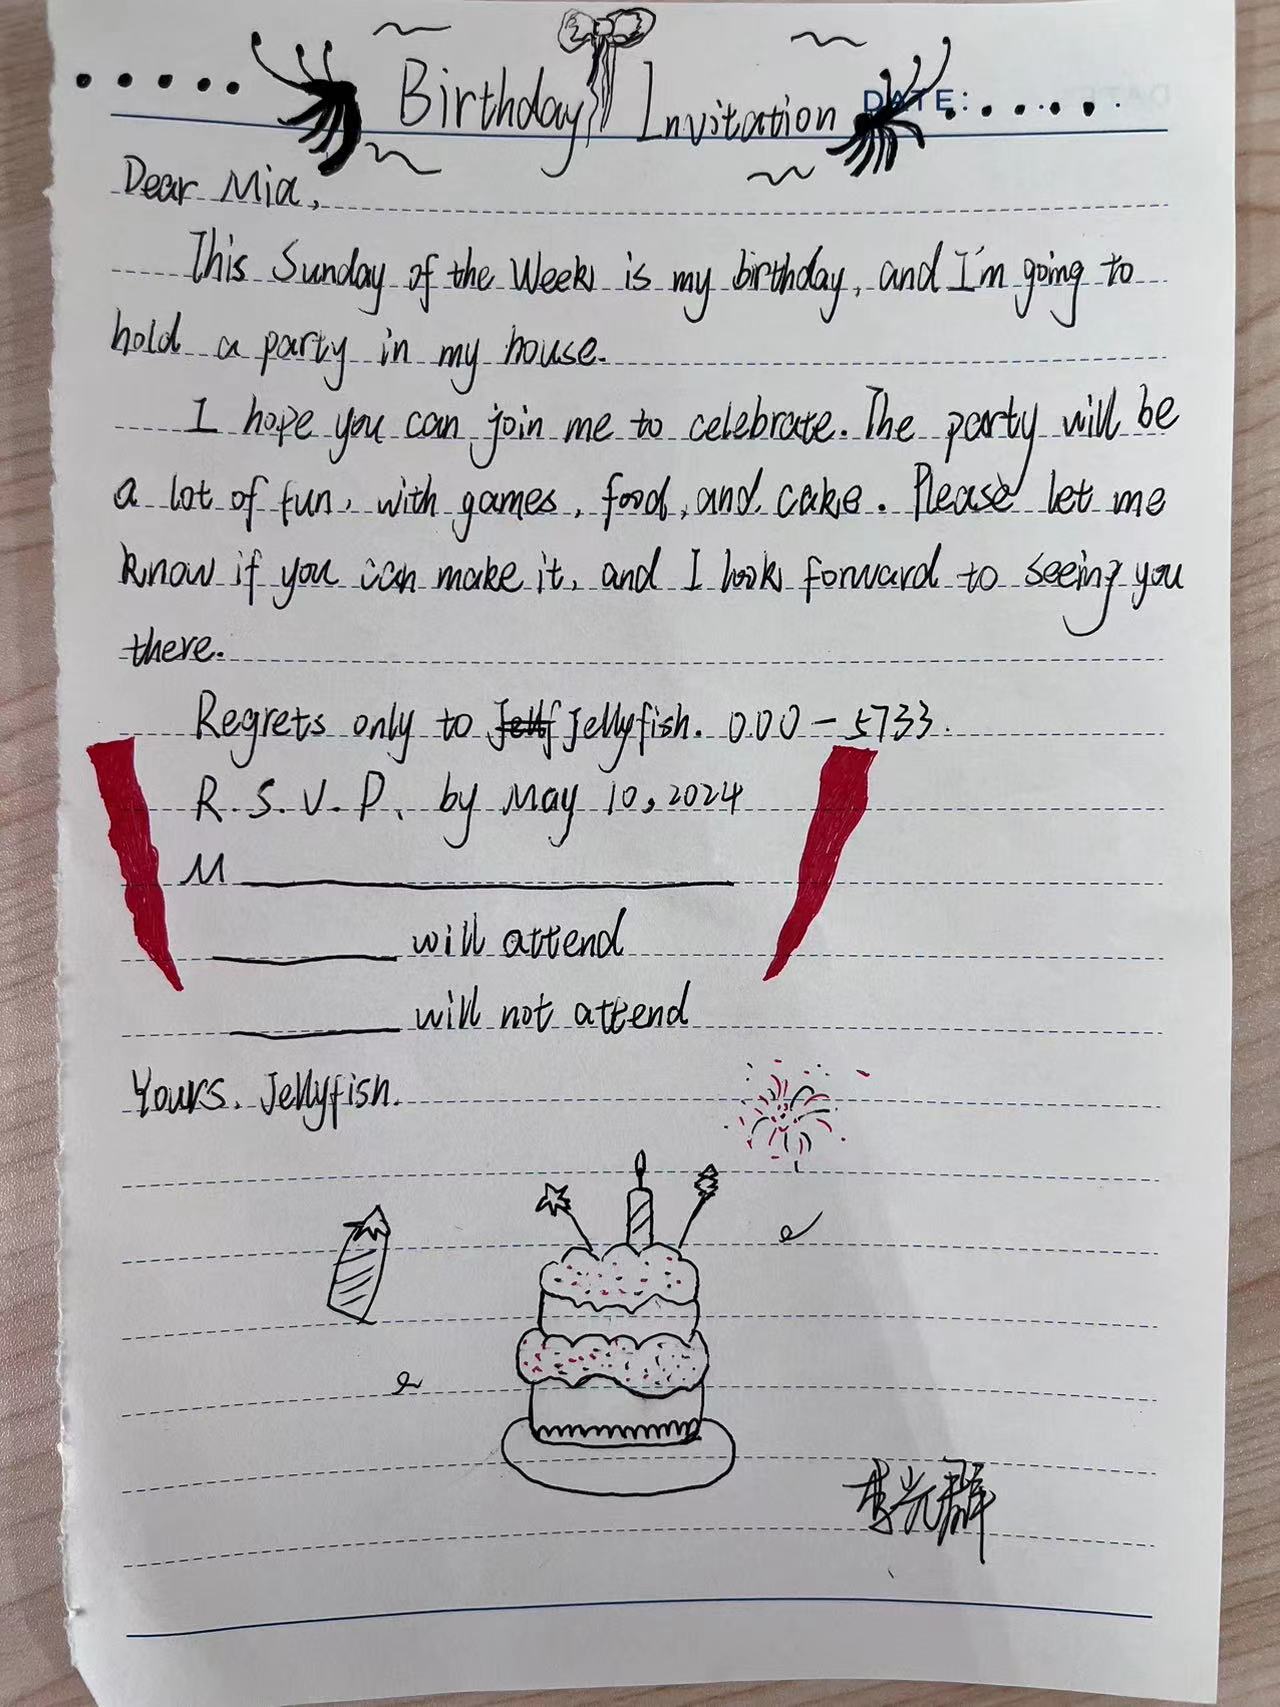 Birthday Invitation
DATE:
Dear Mia,
This Sunday of the Week is my birthday, and I'm going to
hold a party in my house.
I hope you can join me to celebrate. The party will be
a lot of fun, with games, food, and cake. Please let me
know if you can make it, and I look forward to seeing you
there.
Regrets only to Jellf Jellyfish. 000-5733.
R.S.V.P. by May 10, 2024
M
will attend
will not attend
Yours, Jellyfish.
李光群